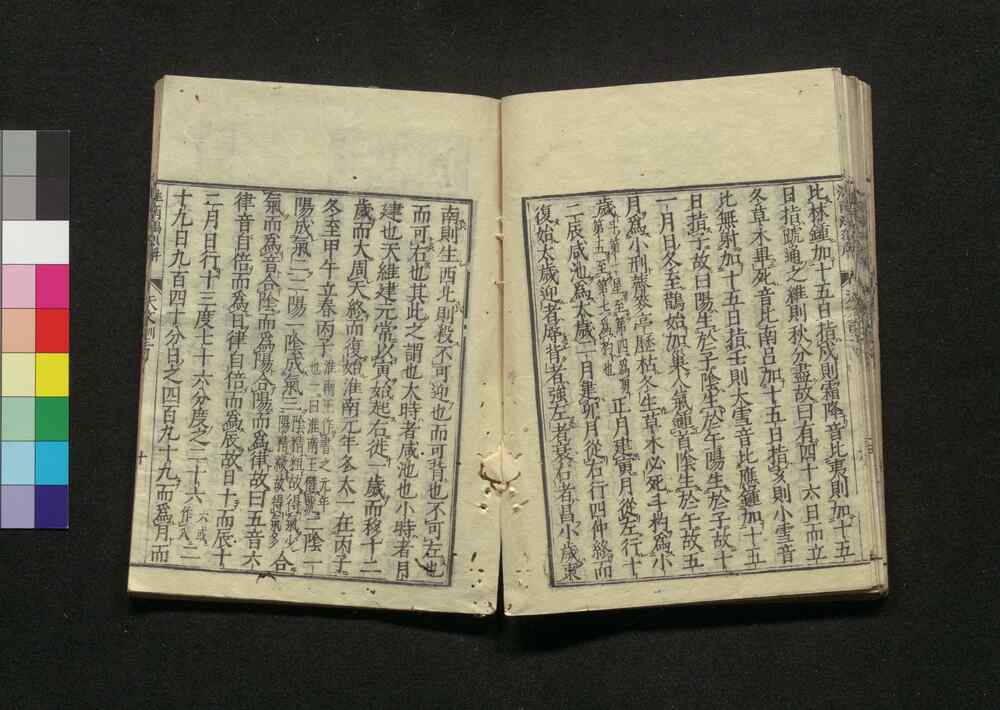 比林鐘加十五日指戌則霜降音比夷則加十五
日指蹏通之維則秋分盡故曰有四十六日而立
冬草木畢死音比南呂加十五日指亥則小雪音
比無射加十五日指壬則大雪音比應鐘加十五
日指子故曰陽生於子陰生於午陽生於子故十
一月日冬至鵲始加巢人氣鍾首陰生於午故五
月爲小刑薺麥亭歷枯冬生草木必死斗杓爲小
歲斗第一星至第四爲魁第五至第七爲杓也正月建寅月從左行十
二辰咸池爲太歲二月建卯月從右行四仲終而
復始太歲迎者辱背者強左者衰右者昌小歲東
南則生西北則殺不可迎也而可背也不可左也
而可右也其此之謂也大時者咸池也小時者月
建也天維建元常以寅始起右徙一歲而移十二
歲而大周天終而復始淮南元年冬太一在丙子淮南王作書之元年也一曰淮南王僭號
冬至甲午立春丙子二陰一
陽成氣二二陽一陰成氣三陰精粗故得氣少陽精微故得氣多合
氣而爲音合陰而爲陽合陽而爲律故曰五音六
律音自倍而爲日律自倍而爲辰故日十而辰十
二月日行十三度七十六分度之二十六六或作八二
十九日九百四十分日之四百九十九而爲月而
天文訓三
十